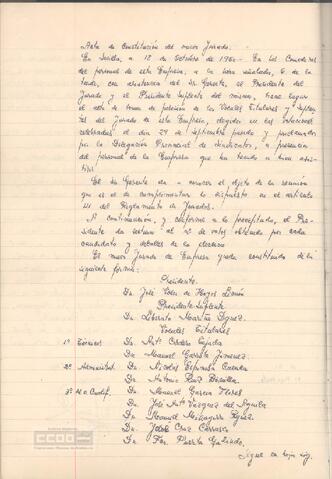 Acta de Constitución del nuevo Jurado.
En Sevilla, a 18 de Octubre de 1960 - En los Comedores
del personal de esta Empresa, a la hora señalada, 5 de la
tarde, con asistencia del Sr. Gerente, el Presidente del
Jurado y el Presidente Suplente del mismo, tiene lugar
el acto de toma de posesión de los Vocales Titulares y Suplen-
tes del Jurado de esta Empresa, elegidos en las votaciones
celebradas el día 29 de Septiembre pasado y proclamados
por la Delegación Provincial de Sindicatos, a presencia
del personal de la Empresa que ha tenido a bien asis-
tir.
El Sr. Gerente da a conocer el objeto de la reunión
que es el de cumplimentar lo dispuesto en el artículo
del Reglamento de Jurados.
A continuación, y conforme a lo preceptuado, el Pre-
sidente da lectura al nº de votos obtenido por cada
candidato y detalles de la elección
El nuevo Jurado de Empresa queda constituido de la
siguiente forma:
Presidente.
Dn. José de Hoyos Limón
Presidente Suplente
Dn. Liberato Mariña
Vocales Titulares
1º Técnicos. Dn. Antº Cordero
Dn. Manuel Garrote Jimenez.
2º Administrat. Dn. Nicolás Cuenca
Dn. Antonio Ruiz
3º M. o Cualif. Dn. Manuel Garcia Flores
Dn. José Antº Vazquez del Aguila
Dn. Manuel
Dn. José Cruz Carrasco
Dn. Fco. Puerto Galindo.
Sigue en hoja sig.
CCOO